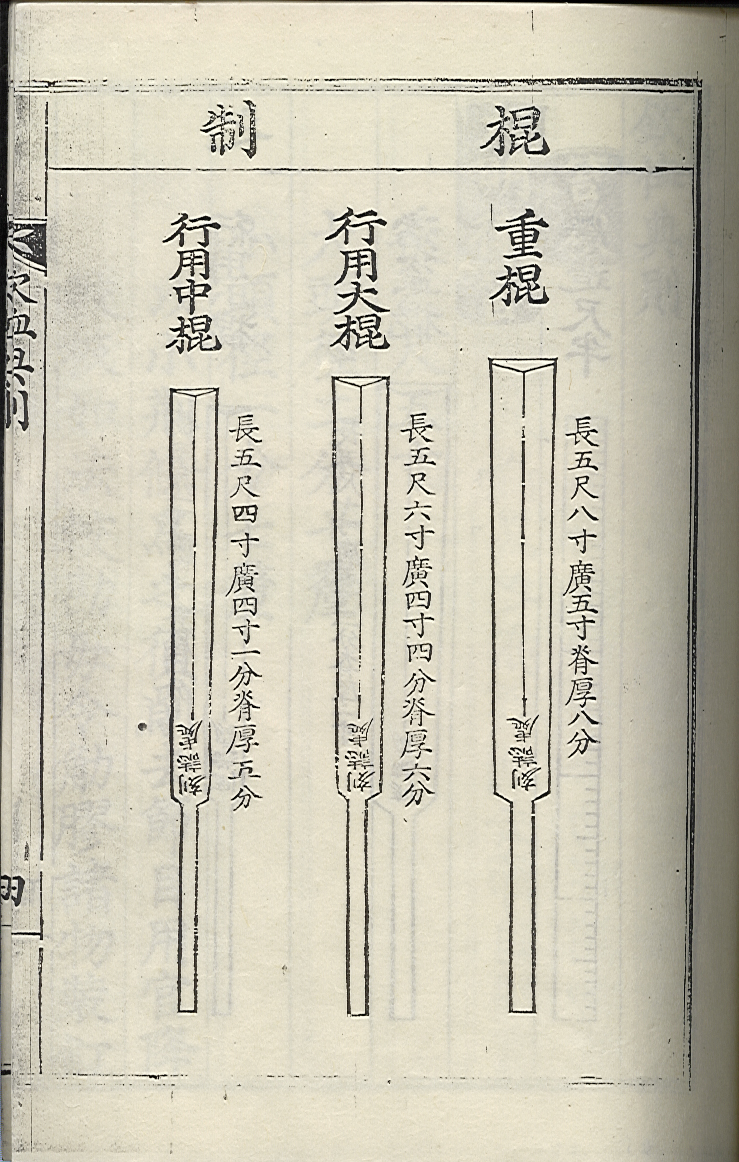 棍制
重棍
長五尺八寸廣五寸脊厚八分
刻誌處
行用大棍
長五尺六寸廣四寸四分脊厚六分
刻誌處
行用中棍
長五尺四寸廣四寸一分脊厚五分
刻誌處